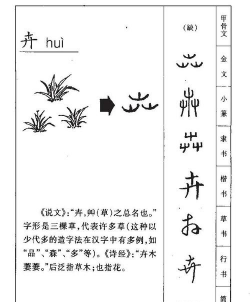 卉 huì
《说文》：“卉，艸（草）之总名也。”
字形是三棵草，代表许多草（这种以
少代多的造字法在汉字中有多例，如
“品”、“森”、“多”等）。《诗经》：“卉木
萋萋。”后泛指草木；也指花。
（缺）
甲骨文
金文
小篆
隶书
楷书
卉
草书
行书
卉